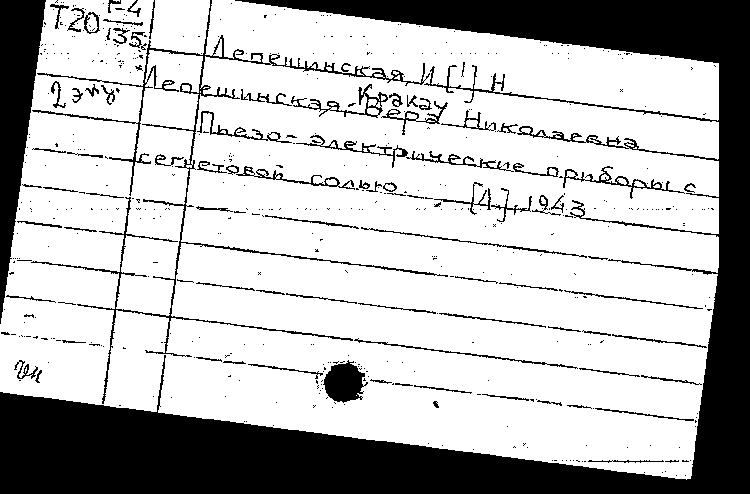 Т20 F-4
135
Лепешинская, И [!] Н
2 экз.
Лепешинская-Кракау, Вера Николаевна
Пьезо-электрические приборы с
сегнетовой солью. [Л.], 1943